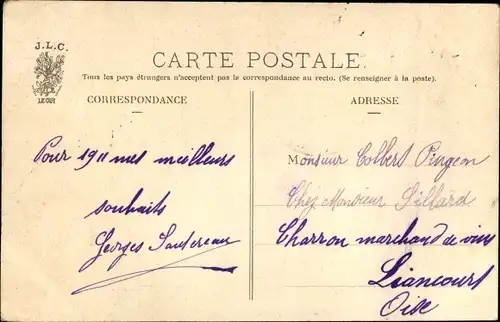 J.L.C.
CARTE POSTALE.
Tous les pays étrangers n'acceptent pas la correspondance au recto. (Se renseigner à la poste).
CORRESPONDANCE
Pour 1911 mes meilleurs
souhaits
Georges Sautereau
ADRESSE
Monsieur Colbert Pingeon
Chez Monsieur Sillard
Charron marchand de vins
Liancourt
Oise